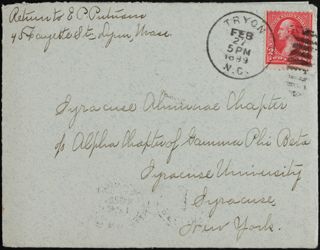 Return to E P Putnam
45 Fayette St., Lynn, Mass.
TRYON
FEB
5 PM
1899
N.C.
Syracuse Alumnae Chapter
c/o Alpha Chapter of Gamma Phi Beta
Syracuse University
Syracuse
New York.